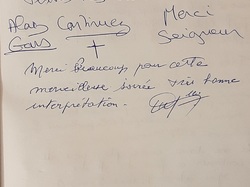 Merci
Seigneur
Alors Continuez
Gars
Merci beaucoup pour cette
merveilleuse soirée très bonne
interprétation.